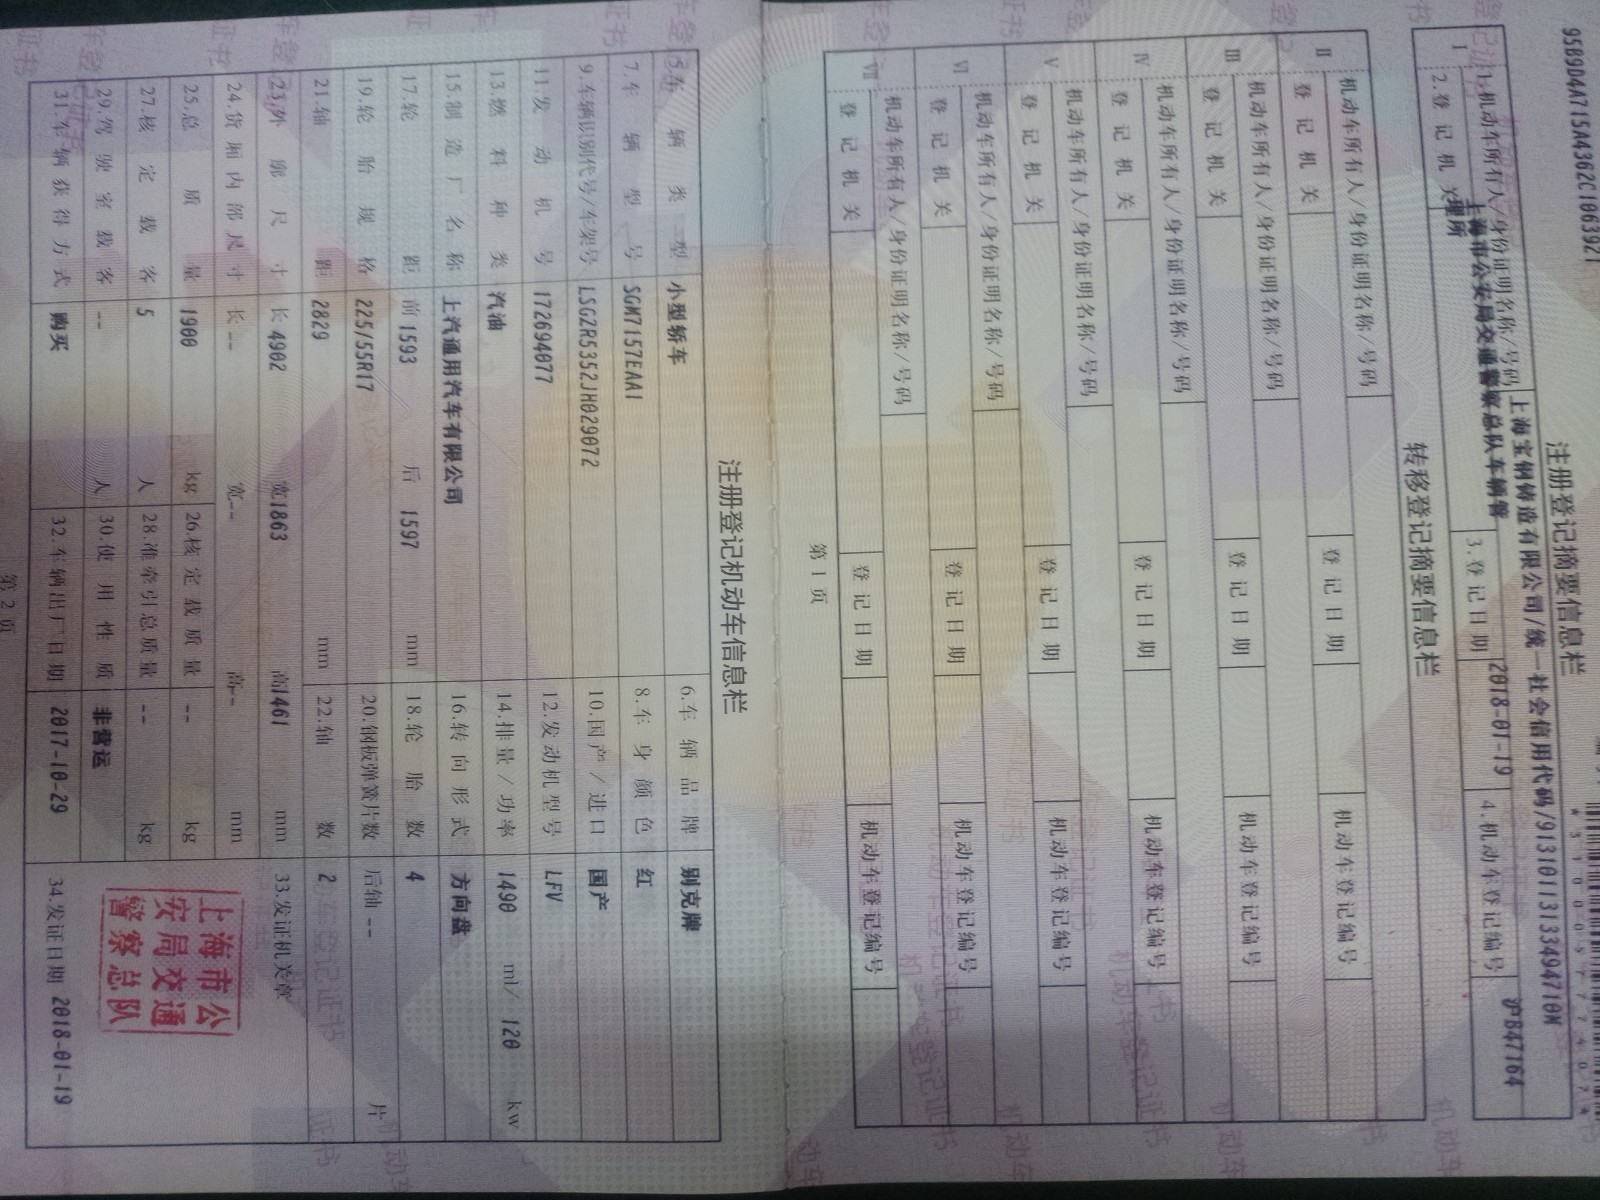 95B904A715A4362C1063921
注册登记摘要信息栏
I
1.机动车所有人/身份证明名称/号码
上海宝钢铸造有限公司/统一社会信用代码/91310113133494710M
2.登记机关
上海市公安局交通警察总队车辆管理所
3.登记日期
2018-01-19
4.机动车登记编号
沪B47164
转移登记摘要信息栏
II
机动车所有人/身份证明名称/号码
登记机关
登记日期
机动车登记编号
III
机动车所有人/身份证明名称/号码
登记机关
登记日期
机动车登记编号
IV
机动车所有人/身份证明名称/号码
登记机关
登记日期
机动车登记编号
V
机动车所有人/身份证明名称/号码
登记机关
登记日期
机动车登记编号
VI
机动车所有人/身份证明名称/号码
登记机关
登记日期
机动车登记编号
VII
机动车所有人/身份证明名称/号码
登记机关
登记日期
机动车登记编号
第1页
注册登记机动车信息栏
5.车辆类型 小型轿车 6.车辆品牌 别克牌
7.车辆型号 SGM7157EAA1 8.车身颜色 红
9.车辆识别代号/车架号 LSGZR5352JH029072 10.国产/进口 国产
11.发动机号 172694077 12.发动机型号 LFV
13.燃料种类 汽油 14.排量/功率 1490 ml/ 120 kw
15.制造厂名称 上汽通用汽车有限公司 16.转向形式 方向盘
17.轮距 前 1593 后 1597 mm 18.轮胎数 4
19.轮胎规格 225/55R17 20.钢板弹簧片数 后轴 -- 片
21.轴距 2829 mm 22.轴数 2
23.外廓尺寸 长 4902 宽 1863 高 1461 mm 33.发证机关章
24.货厢内部尺寸 长 -- 宽 -- 高 -- mm
25.总质量 1900 kg 26.核定载质量 -- kg
27.核定载客 5 人 28.准牵引总质量 -- kg
29.驾驶室载客 -- 人 30.使用性质 非营运
31.车辆获得方式 购买 32.车辆出厂日期 2017-10-29 34.发证日期 2018-01-19
上海市公
安局交通
警察总队
第2页